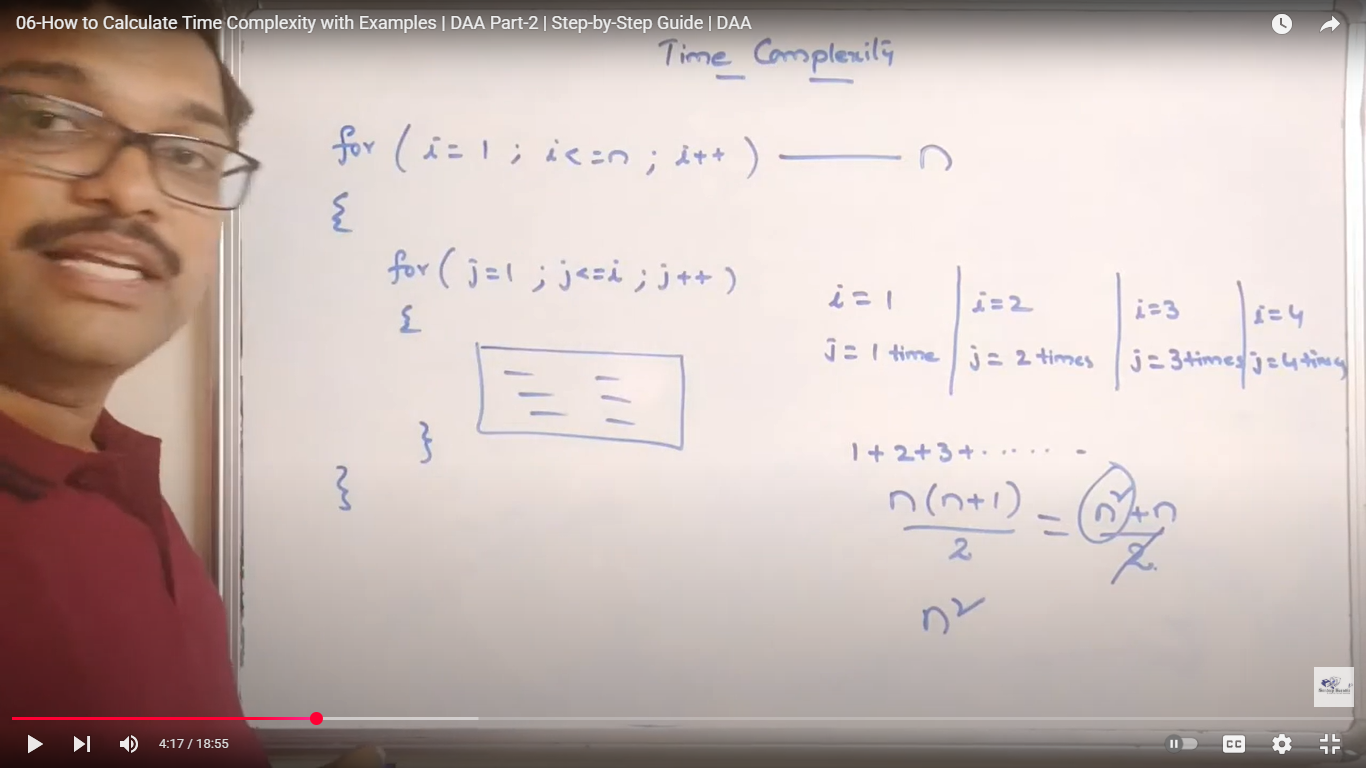 06-How to Calculate Time Complexity with Examples | DAA Part-2 | Step-by-Step Guide | DAA
Time Complexity
for ( i = 1 ; i <= n ; i++ ) — n
{
for ( j = 1 ; j <= i ; j++ )
{
}
}
i = 1 | i=2 | i=3 | i=4
j = 1 time | j = 2 times | j = 3 times | j = 4 times
1 + 2 + 3 + . . . . . . -
n(n+1)/2 = n²+n/2
n²
4:17 / 18:55
CC